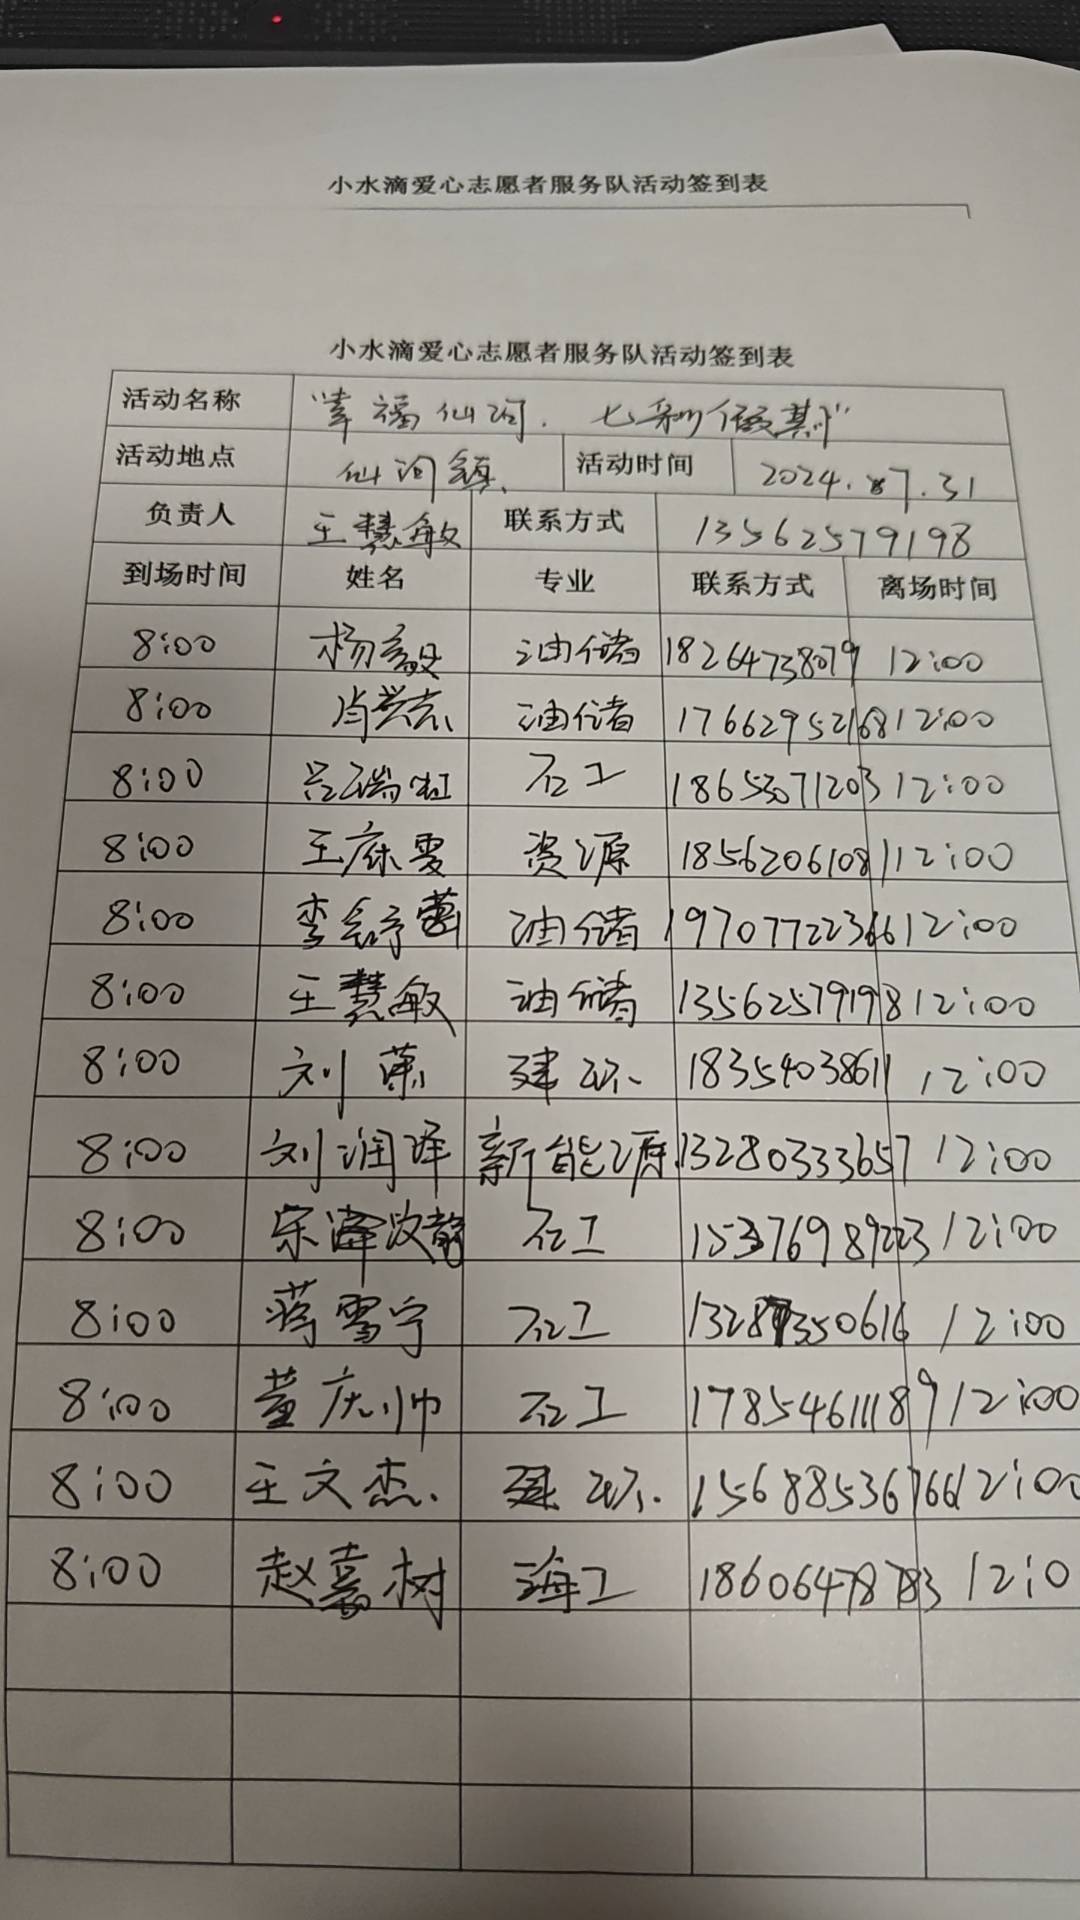 小水滴爱心志愿者服务队活动签到表
小水滴爱心志愿者服务队活动签到表
活动名称 "幸福仙河. 七彩假期"
活动地点 仙河镇. 活动时间 2024.07.31
负责人 王慧敏 联系方式 13562579198
到场时间 姓名 专业 联系方式 离场时间
8:00 杨毅 油储 18264738079 12:00
8:00 肖学志 油储 17662952168 12:00
8:00 吕瑞 石工 18653071203 12:00
8:00 王庥雯 资源 18562061081 12:00
8:00 李 油储 19707722366 12:00
8:00 王慧敏 油储 13562579198 12:00
8:00 刘萧 建环. 18354038611 12:00
8:00 刘润泽 新能源 13280333657 12:00
8:00 宋 石工 15376989223 12:00
8:00 蒋雪宁 石工 12:00
8:00 董庆帅 石工 17854611189 12:00
8:00 王文杰. 建环. 15688536766 12:00
8:00 赵嘉树 海工 18606478783 12:0